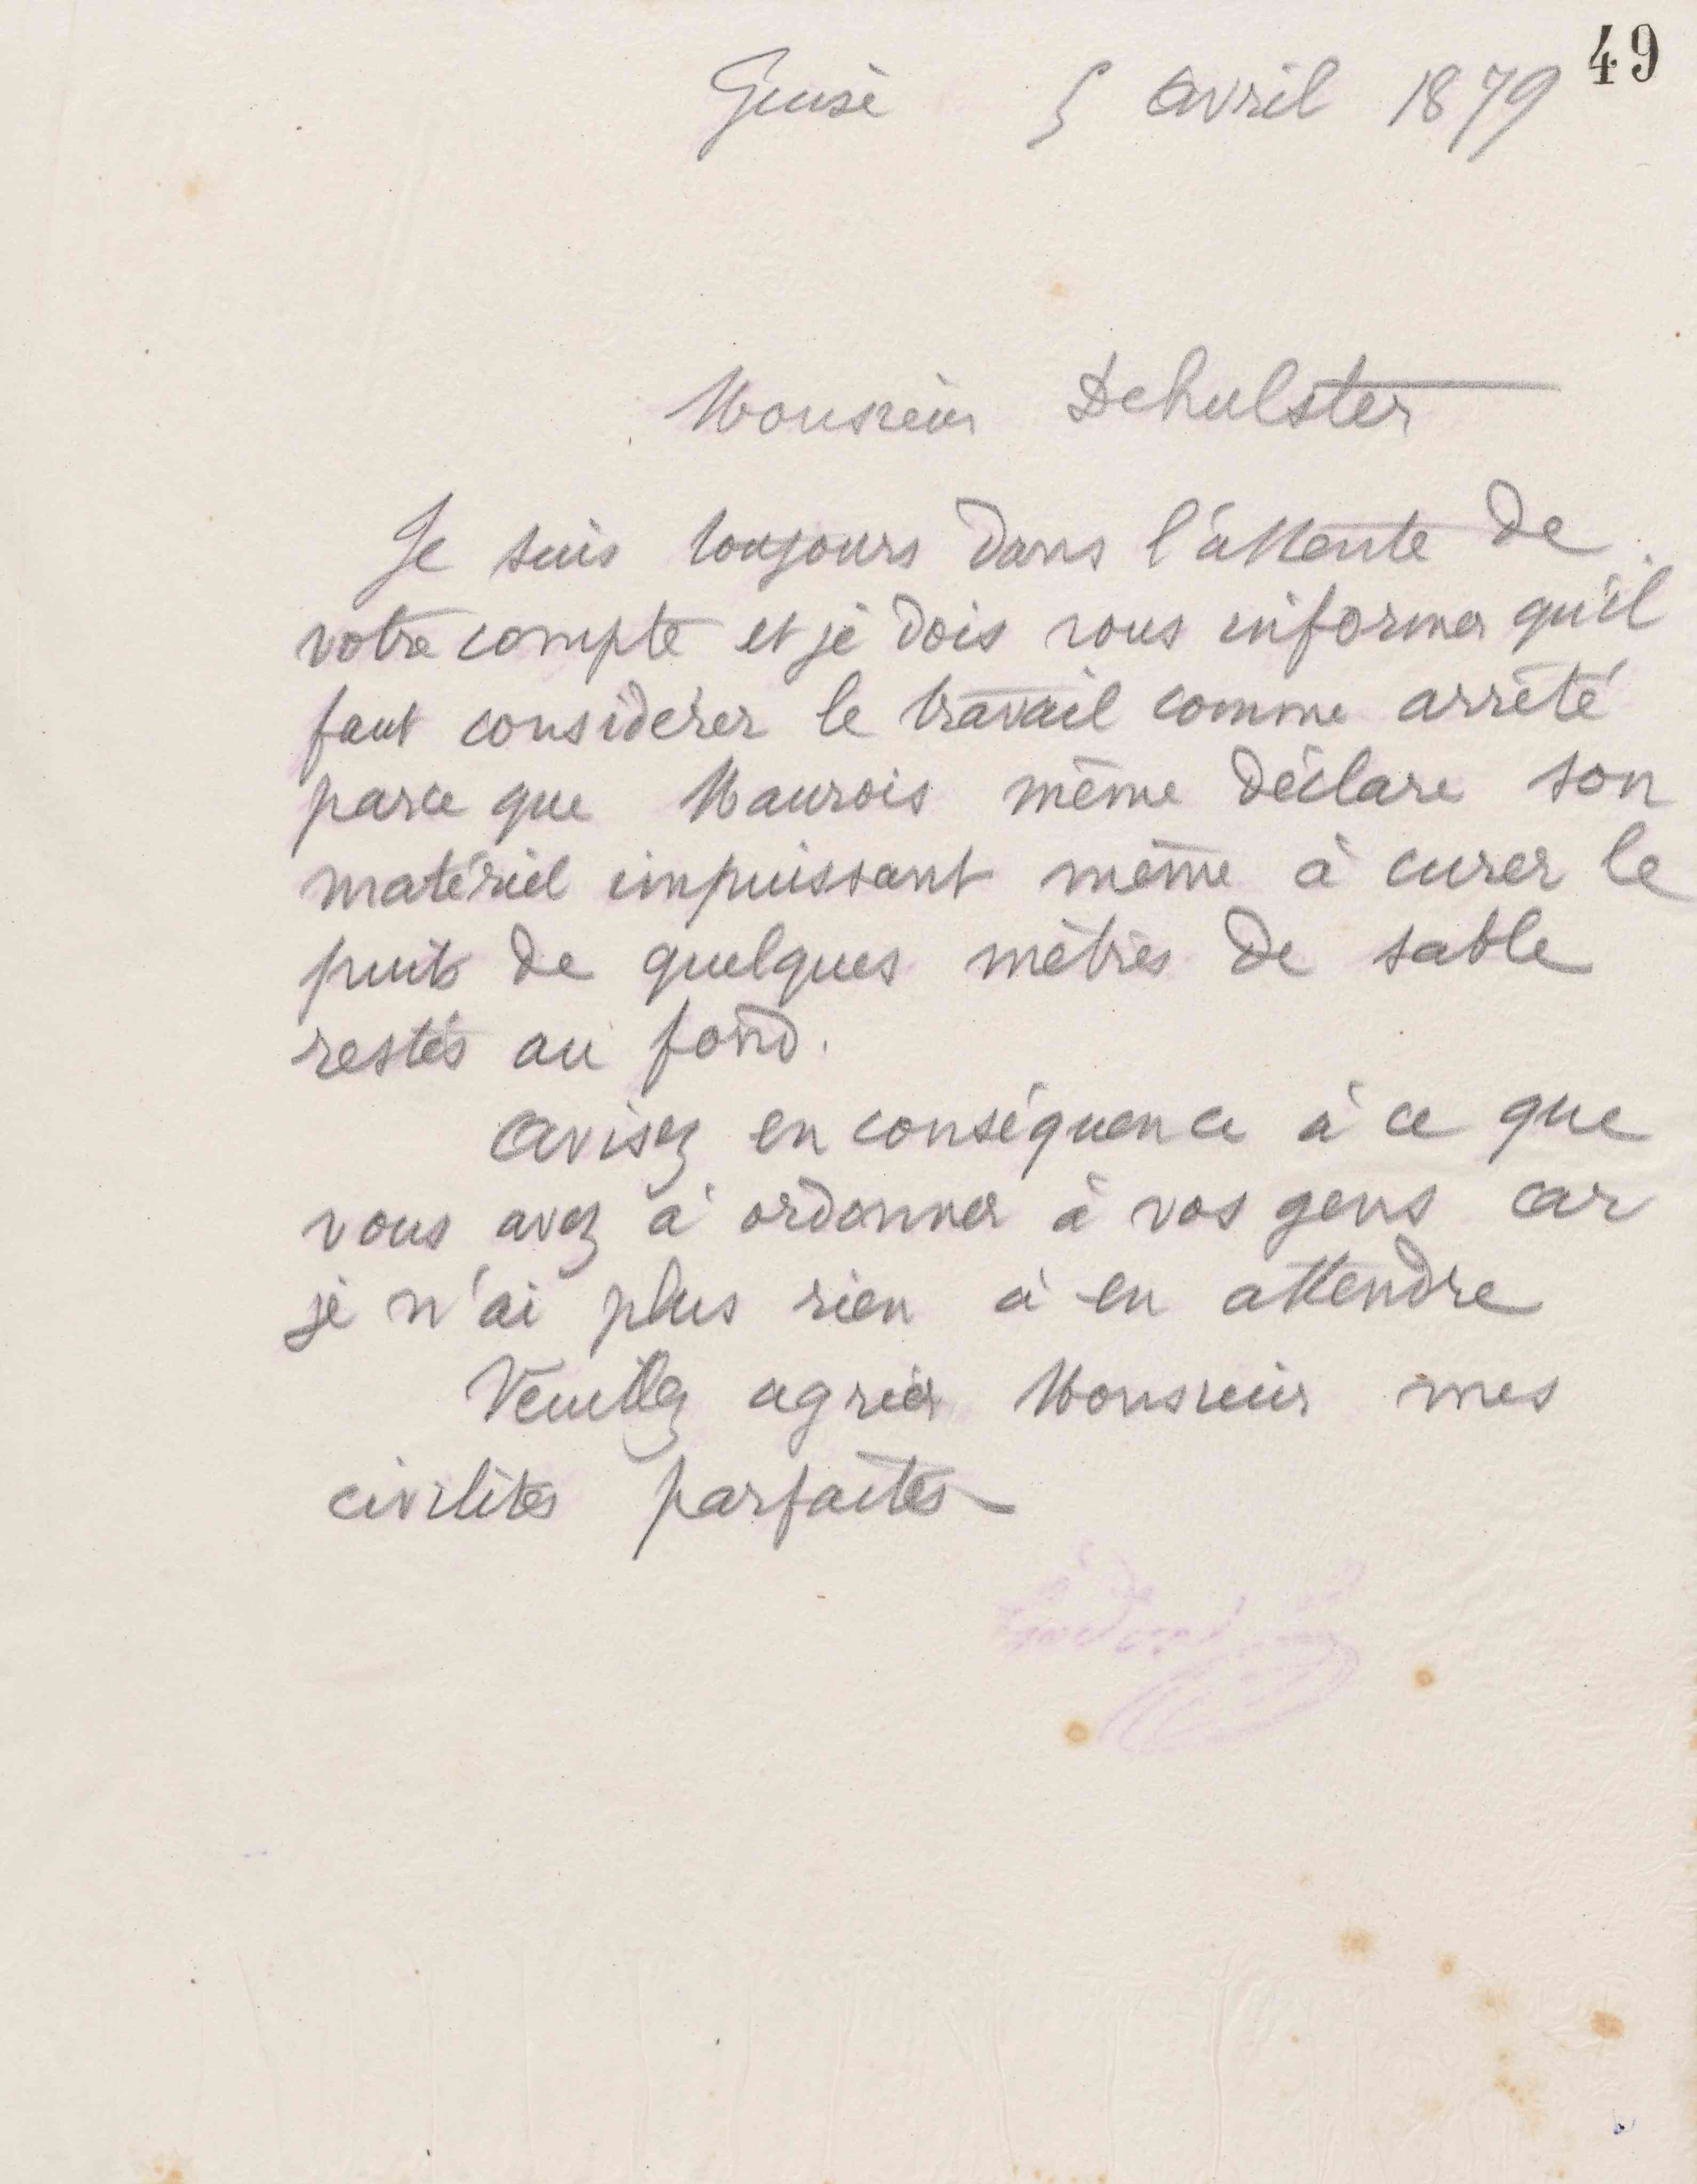 49
Guise 5 avril 1879
Monsieur Dehulster
Je suis toujours dans l'attente de
votre compte et je dois vous informer qu'il
faut considérer le travail comme arrêté
parce que Maurois même déclare son
matériel impuissant même à curer le
puits de quelques mètres de sable
restés au fond.
Avisez en conséquence à ce que
vous avez à ordonner à vos gens car
je n'ai plus rien à en attendre
Veuillez agréer Monsieur mes
civilités parfaites
Godin